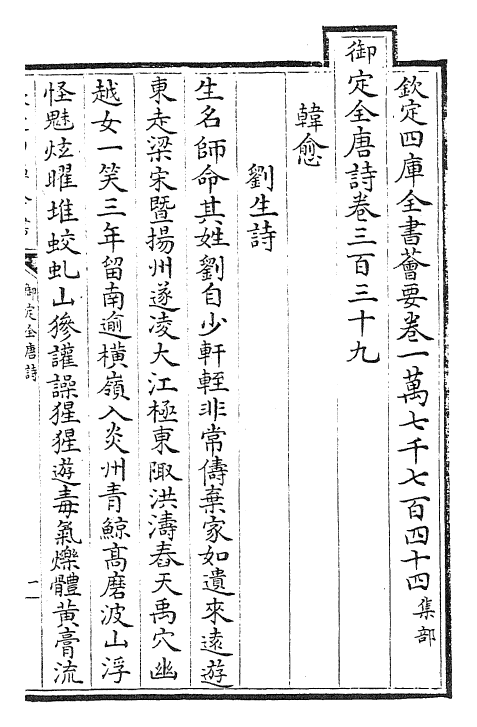 欽定四庫全書薈要卷一萬七千七百四十四集部
御定全唐詩卷三百三十九
韓愈
劉生詩
生名師命其姓劉自少軒輊非常儔棄家如遺來遠遊
東走梁宋暨揚州遂凌大江極東陬洪濤舂天禹穴幽
越女一笑三年留南逾橫嶺入炎州青鯨高磨波山浮
怪魅炫曜堆蛟虬山㺑讙譟猩猩遊毒氣爍體黃膏流
御定全唐詩
一